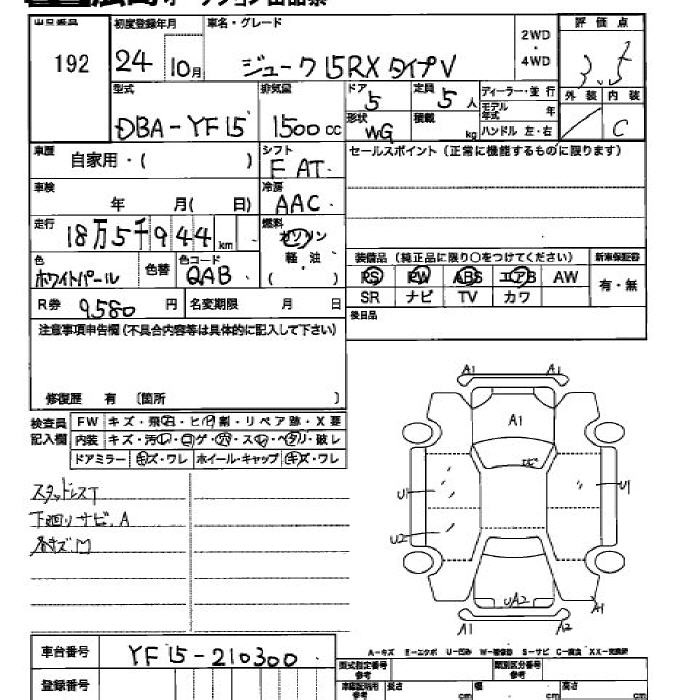 広島オークション出品票
出品番号 192
初度登録年月 24年 10月
車名・グレード ジューク 15RX タイプV
2WD・4WD
評価点 3.5
外装 内装 C
型式 DBA-YF15
排気量 1500 cc
ドア 5
定員 5人
形状 WG
積載 kg
ディーラー・並行
モデル年式 年
ハンドル 左・右
車歴 自家用・( )
シフト F AT
セールスポイント (正常に機能するものに限ります)
車検 年 月( 日)
冷房 AAC
走行 18万5千944 km
燃料 ガソリン 軽油 ( )
色 ホワイトパール 色替
色コード QAB
装備品 (純正品に限り○をつけてください) 新車保証書
PS PW ABS エアB AW 有・無
SR ナビ TV カワ
R券 9,580 円 名変期限 月 日
後日品
注意事項申告欄(不具合内容等は具体的に記入して下さい)
修復歴 有 〔箇所 〕
検査員記入欄
FW キズ・飛石・ヒビ割・リペア跡・X要
内装 キズ・汚レ・コゲ・穴・スレ・ヘタリ・破レ
ドアミラー キズ・ワレ ホイール・キャップ キズ・ワレ
スタッドレスT
下廻りサビ.A
各キズM
A1 A1
A1
U1 U1
U2
UA2
A1 A1 A1
車台番号 YF15-210300
登録番号
A-キズ E-エクボ U-凹み W-補修跡 S-サビ C-腐食 XX-交換済
型式指定番号 参考
類別区分番号 参考
長さ cm 幅 cm 高さ cm